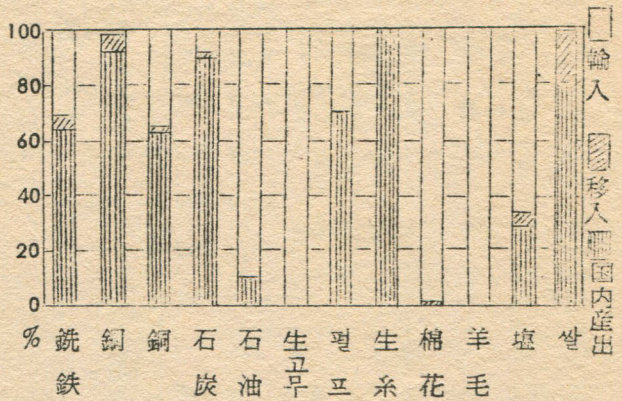 100
80
60
40
20
0
%
銑鉄
鋼
銅
石炭
石油
生고무
펄프
生糸
棉花
羊毛
塩
쌀
輸入
移入
国内産出